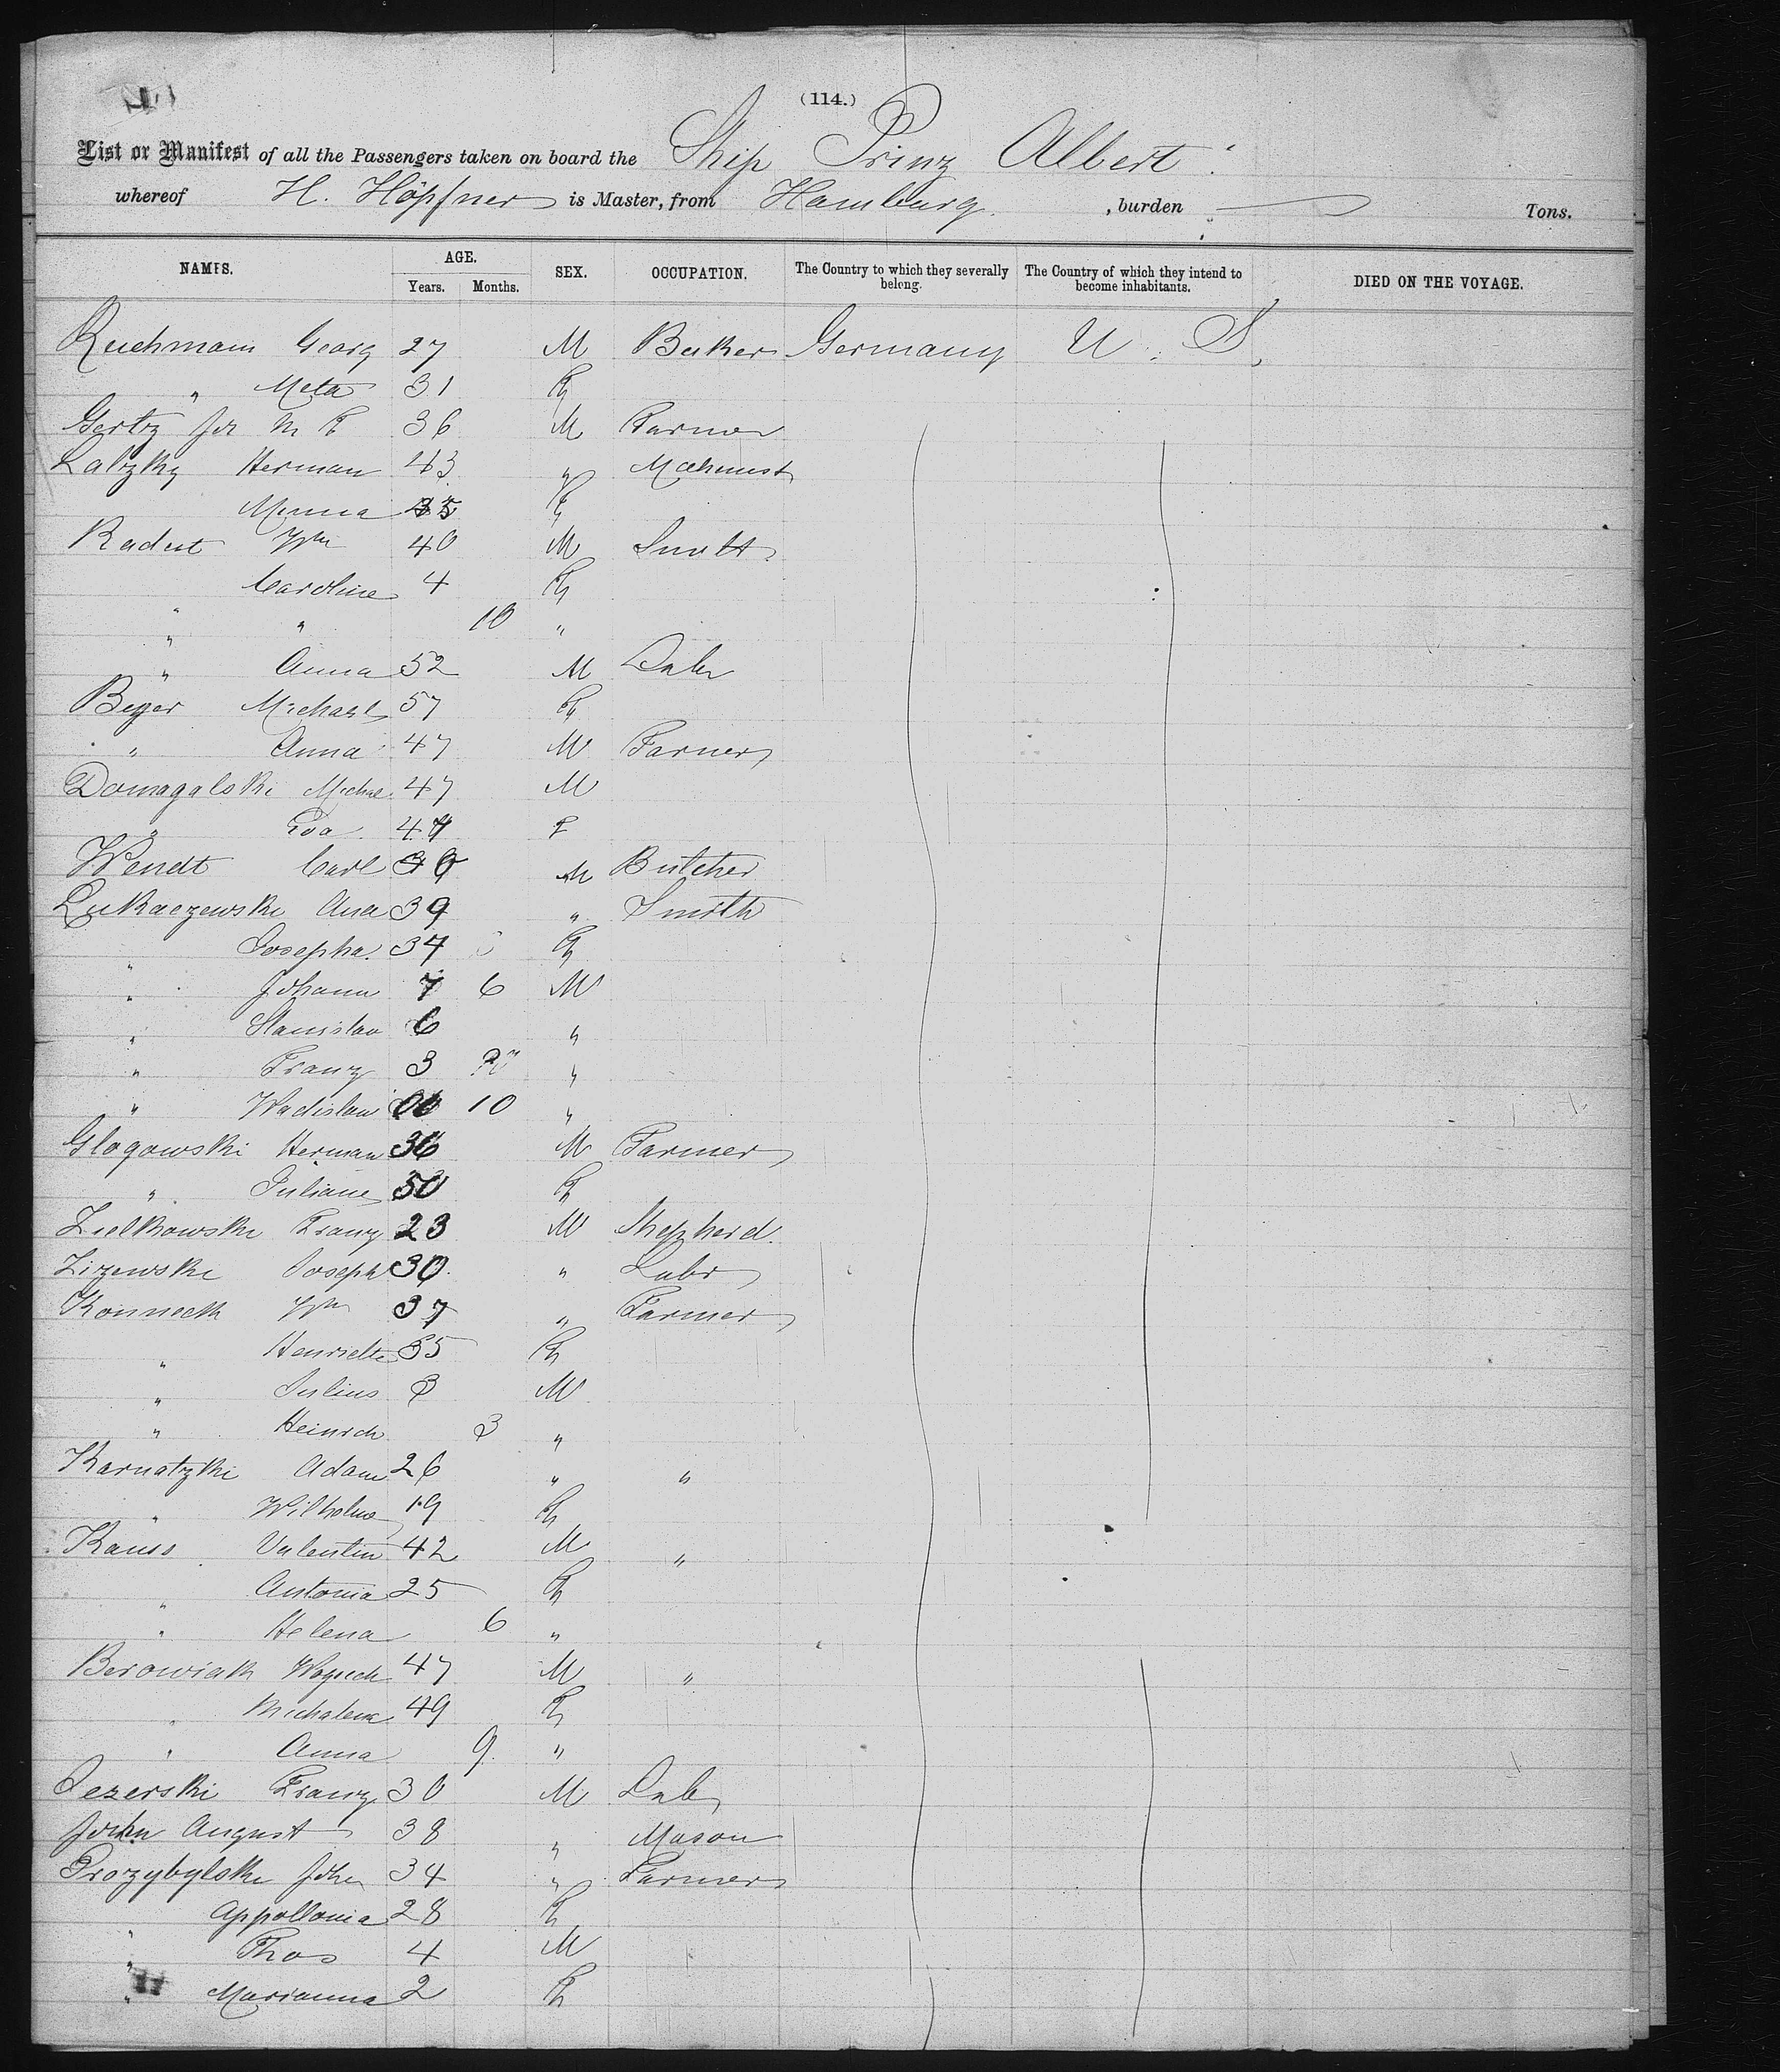 (114.)
List or Manifest of all the Passengers taken on board the Ship Prinz Albert
whereof H. Höpfner is Master, from Hamburg , burden Tons.
NAMES. AGE. Years. Months. SEX. OCCUPATION. The Country to which they severally belong. The Country of which they intend to become inhabitants. DIED ON THE VOYAGE.
Ruchmann Georg 27 M Baker Germany U. S.
" Meta 31 F
Gertz Joh M F 36 M Farmer
Latzky Herman 43 " Machinist
Minna 35 F
Radert Wm 40 M Smith
" Caroline 4 F
" " 10 "
" Anna 52 M Labr
Beyer Michael 57 F
" Anna 47 M Farmer
Domagalski Michae 47 M
" Eva 47 F
Wendt Carl 30 M Butcher
Lukaczewski 39 " Smith
" Josepha 34 F
" Johann 7 6 M
" Stanislav 6 "
" Franz 3 "
" Wadislav 10 "
Glogowski Herman 36 M Farmer
" Juliane 30 F
Zielkowski Franz 23 M Shepherd
Zizewski Joseph 30 " Labr
Konneck Wm 37 " Farmer
" Henriette 35 F
" Julius 3 M
" Heinrch 3 "
Karnatzki Adam 26 " "
" Wilhelme 19 F
Kauss Valentin 42 M "
" Antonia 25 F
" Helena 6 "
Berowiak Woyciech 47 M "
" Michalena 49 F
" Anna 9 "
Jezerski Franz 30 M Lab
John August 38 " Mason
Przybylski John 34 " Farmer
" Appollonia 28 F
" Thos 4 M
" Marianna 2 F